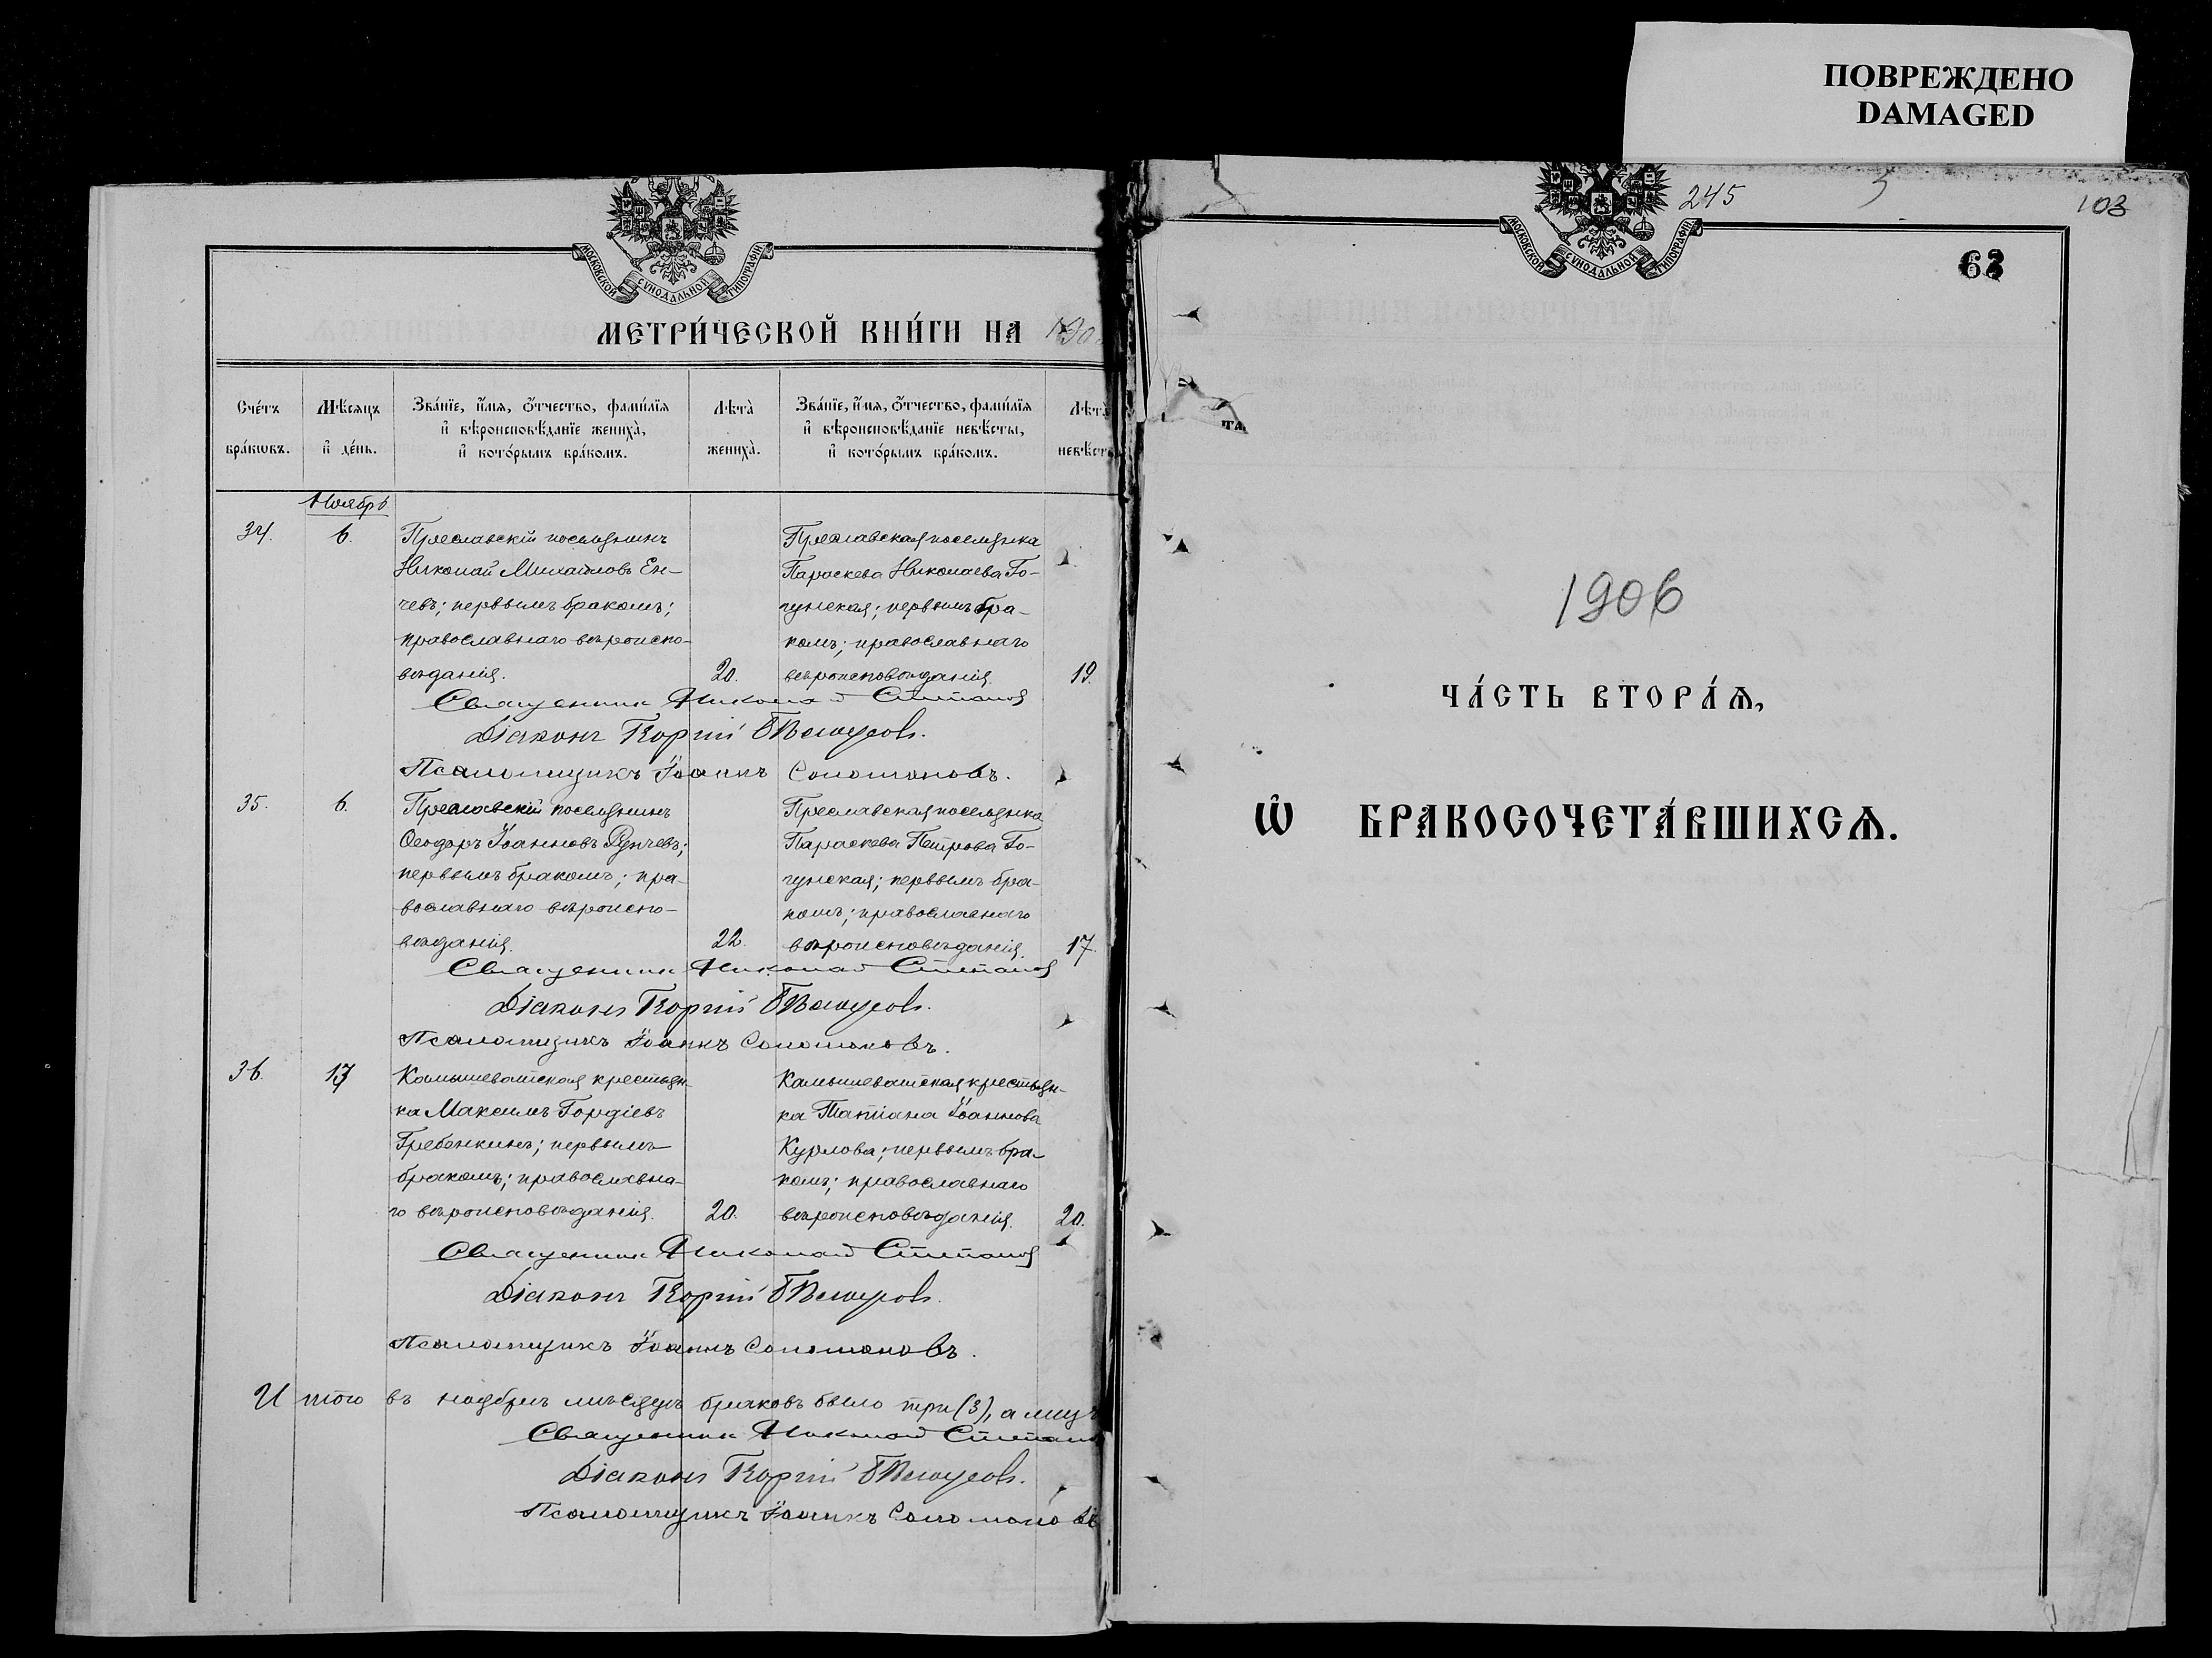 ПОВРЕЖДЕНО
DAMAGED
МОСКОВСКОЙ СѴНОДАЛЬНОЙ ТИПОГРАФІИ
МЕТРИ́ЧЕСКОЙ КНИ́ГИ НА 190
Сче́тъ бра́кѡвъ.
Мѣ́сяцъ и де́нь.
Зва́нїе, и́мѧ, ѻ҆́тчество, фами́лїѧ и вѣроисповѣ́данїе жениха̀, и кото́рымъ бра́комъ.
Лѣта̀ жениха̀.
Зва́нїе, и́мѧ, ѻ҆́тчество, фами́лїѧ и вѣроисповѣ́данїе невѣ́сты, и кото́рымъ бра́комъ.
Лѣта̀ невѣ́ст
Ноябрь
34. 6.
Преславскій поселянинъ
Николай Михайловъ Ен-
чевъ; первымъ бракомъ;
православнаго вѣроиспо-
вѣданія. 20.
Преславская поселянка
Параскева Николаева Го-
гунская; первымъ бра-
комъ; православнаго
вѣроисповѣданія. 19.
Священникъ Николай Степанов
Діаконъ Георгій Бѣлоусовъ.
Псаломщикъ Іоаннъ Соломоновъ.
35. 6.
Преславскій поселянинъ
Ѳеодоръ Іоанновъ Рунчевъ;
первымъ бракомъ; пра-
вославнаго вѣроиспо-
вѣданія. 22.
Преславская поселянка
Параскева Петрова Го-
гунская; первымъ бра-
комъ; православнаго
вѣроисповѣданія. 17.
Священникъ Николай Степанов
Діаконъ Георгій Бѣлоусовъ.
Псаломщикъ Іоаннъ Соломоновъ.
36. 13
Камышеватская крестьян-
ка Максимъ Гордіевъ
Гребенкинъ; первымъ
бракомъ; православна-
го вѣроисповѣданія. 20.
Камышеватская крестьян-
ка Татіана Іоаннова
Курлова; первымъ бра-
комъ; православнаго
вѣроисповѣданія. 20.
Священникъ Николай Степанов
Діаконъ Георгій Бѣлоусовъ.
Псаломщикъ Іоаннъ Соломоновъ.
Итого въ ноябрѣ мѣсяцѣ браковъ было три (3), а лицъ
Священникъ Николай Степано
Діаконъ Георгій Бѣлоусовъ.
Псаломщикъ Іоаннъ Соломоновъ
245
103
МОСКОВСКОЙ СѴНОДАЛЬНОЙ ТИПОГРАФІИ
та̀
1906
ЧА́СТЬ ВТОРА́Ѧ,
Ѽ БРАКОСОЧЕТА́ВШИХСѦ.